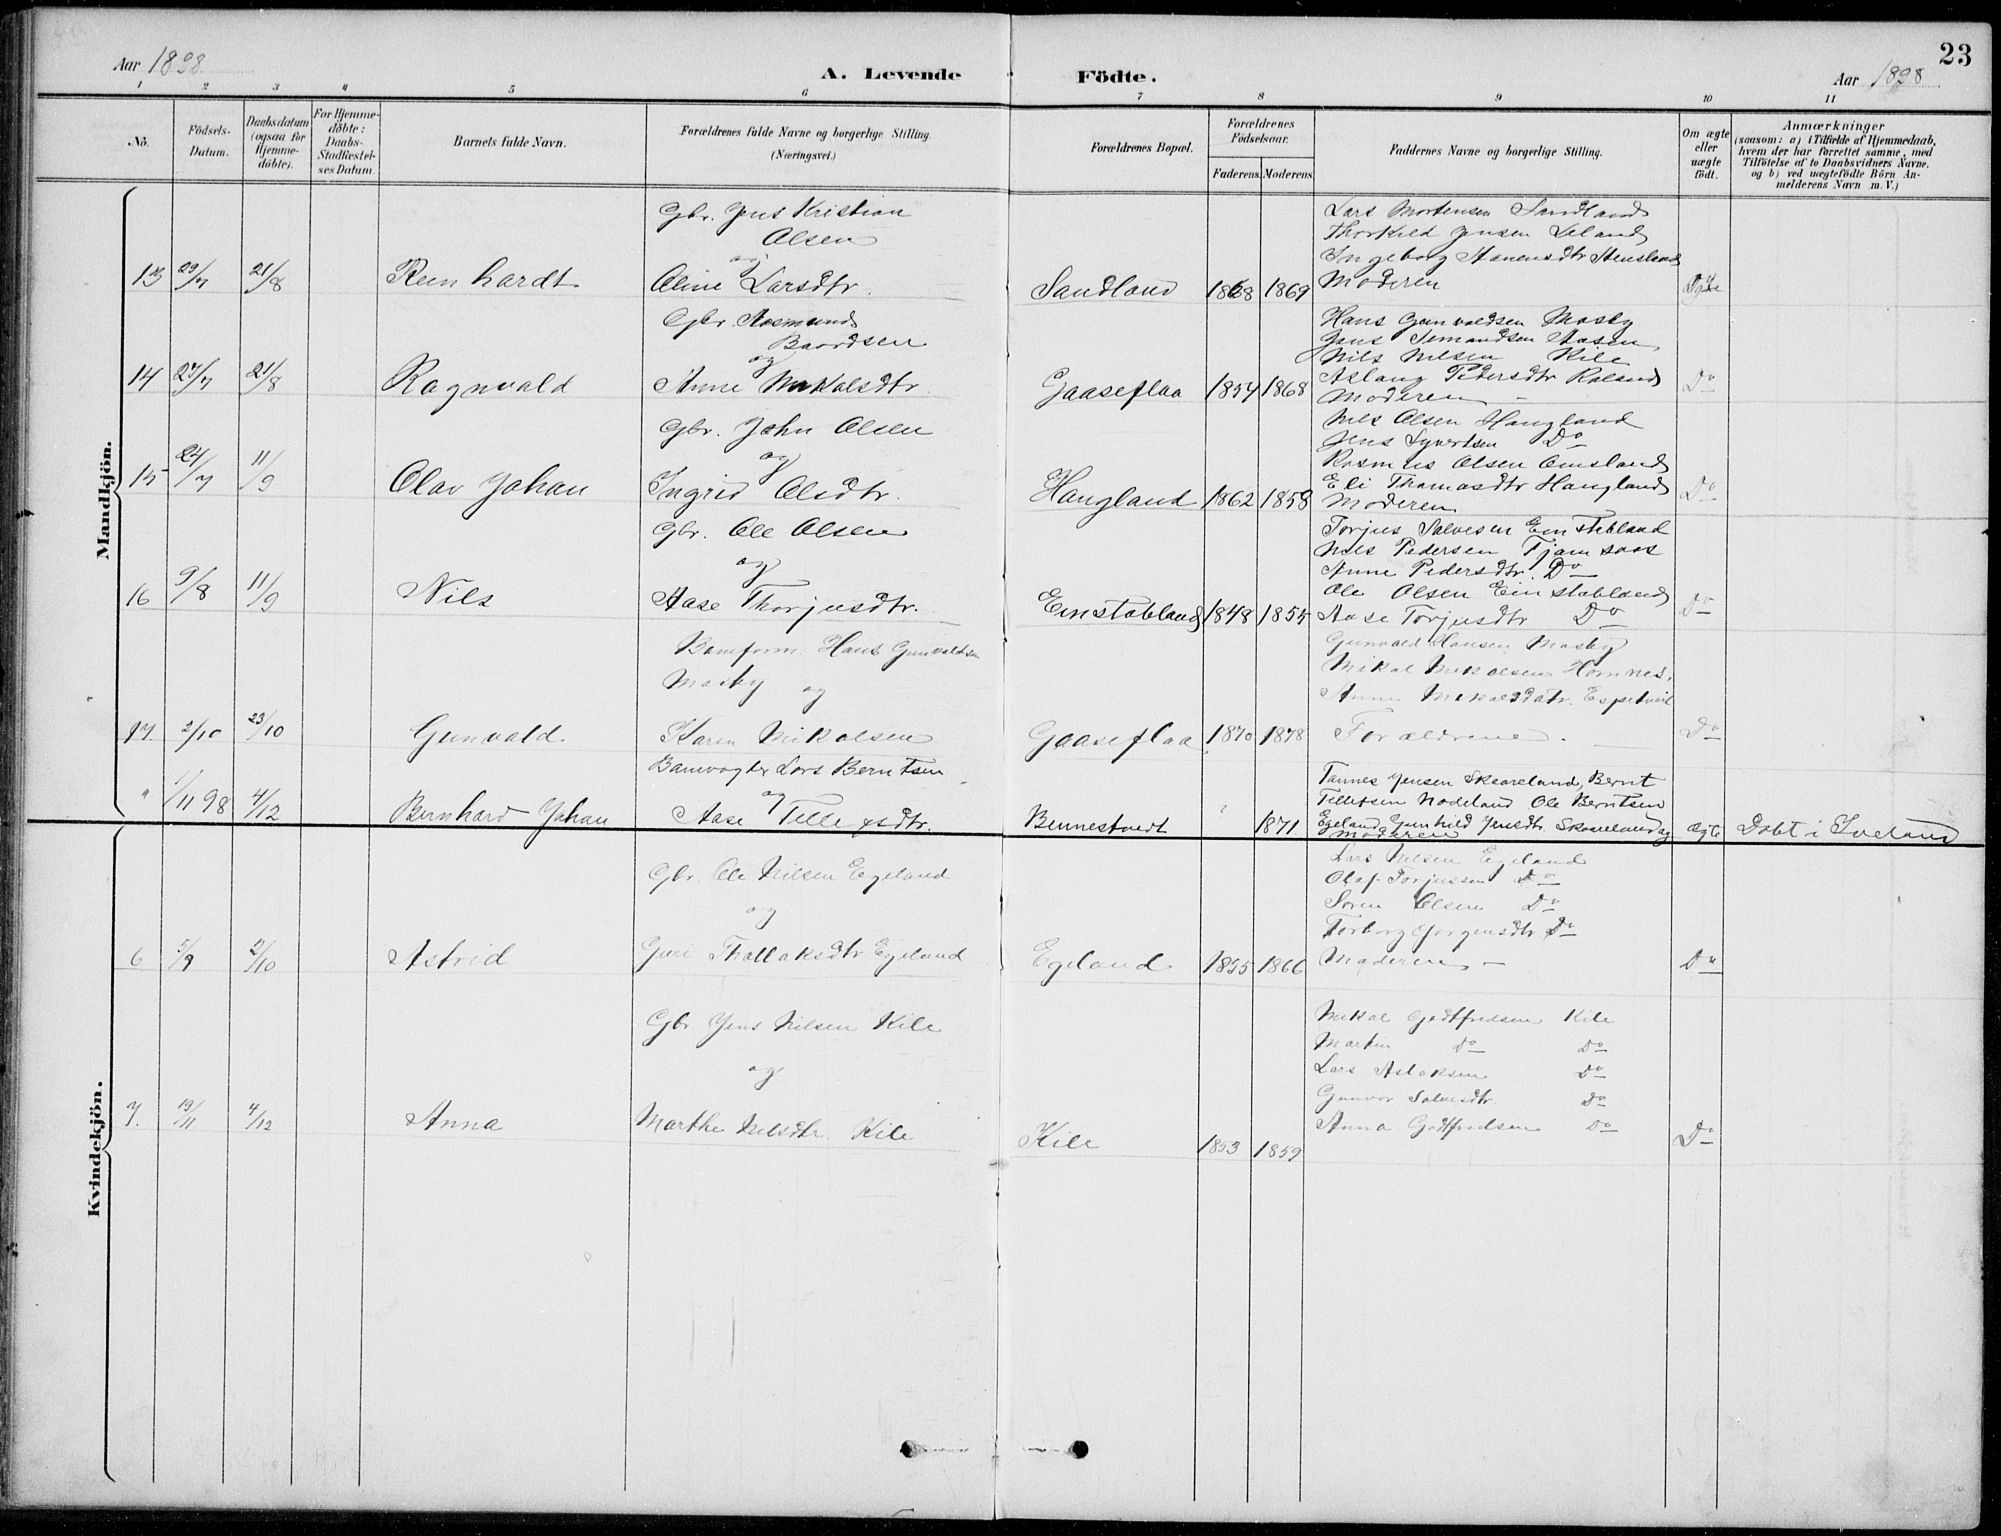 23
Aar 1898
A. Levende Födte.
Aar 1898
1 2 3 4 5 6 7 8 9 10 11
No.
Födsels-Datum.
Daabsdatum (ogsaa for Hjemme-döbte).
For Hjemme-döbte: Daabs-Stadfæstel-ses Datum.
Barnets fulde Navn.
Forældrenes fulde Navne og borgerlige Stilling.
(Næringsvei.)
Forældrenes Bopæl.
Forældrenes Födselsaar.
Faderens. Moderens.
Faddernes Navne og borgerlige Stilling.
Om ægte eller uægte födt.
Anmærkninger
(saasom: a) i Tilfælde af Hjemmedaab,
hvem der har forrettet samme, med
Tilföielse af to Daabsvidners Navne.
og b) ved uægtefödte Börn An-
melderens Navn m. V.)
Mandkjön.
Gbr. Jens Kristian
Olsen
og
13 29/7 21/8 Reinhardt Oline Larsdtr. Sandland 1868 1869
Lars Mortensen Sandland
Thorkild Jensen Leland
Ingeborg Hanensdtr Stensland
Moderen
Gbr. Aasmund
Baardsen
og
14 27/7 21/8 Ragnvald Anne Mikalsdtr. Gaaseflaa 1854 1868 Do
Hans Gunvaldsen Mosby
Jens Aasen
Nils Nilsen Kile
Aslaug Pedersdtr Roland
Moderen
Gbr. John Olsen
og
15 24/7 11/9 Olav Johan Ingrid Olsdtr. Haugland 1862 1858 Do
Nils Olsen Haugland
Jens Syvertsen Do
Rasmus Olsen Omsland
Eli Thomasdtr Haugland
Moderen
Gbr. Ole Olsen
og
16 9/8 11/9 Nils Aase Thorjusdtr. Einstabland 1848 1855 Do
Torjus Salvesen Einstabland
Nils Pedersen Tjomsaas
Anne Pedersdtr. Do
Ole Olsen Einstabland
Aase Torjusdtr Do
Banform. Hans Gunvaldsen
Mosby og
17. 2/10 23/10 Gunvald. Karen Mikalsen Gaaseflaa 1870 1878 Do
Gunvald Hansen Mosby
Mikal Mikalsen Homnes.
Anne Mikalsdatr.
Forældrene.
Banevogter Lars Berntsen
og
" 1/11 98 4/12 Bernhard Johan Aase Tellefsdtr. Bennestvedt ? 1871 ægte Døbt i Iveland
Tannes Jensen Skaareland, Bernt
Tellefsen Nodeland Ole Berntsen
Egeland Gunhild Jensdtr Skaareland og
Moderen
Kvindekjön.
Gbr. Ole Nilsen Egeland
og
6 5/9 2/10 Astrid Guri Thallaksdtr Egeland Egeland 1855 1866 Do
Lars Nilsen Egeland
Olaf Torjussen Do
Søren Olsen Do
Torborg Jørgensdtr Do
Moderen
Gbr Jens Nilsen Kile
og
7. 19/11 4/12 Anna Marthe Nilsdtr. Kile Kile 1853 1859 Do
Mikal Godtfredsen Kile
Martin Do Do
Lars Aslaksen Do
Gunvor Salvesdtr. Do
Anna Godtfredsen Do